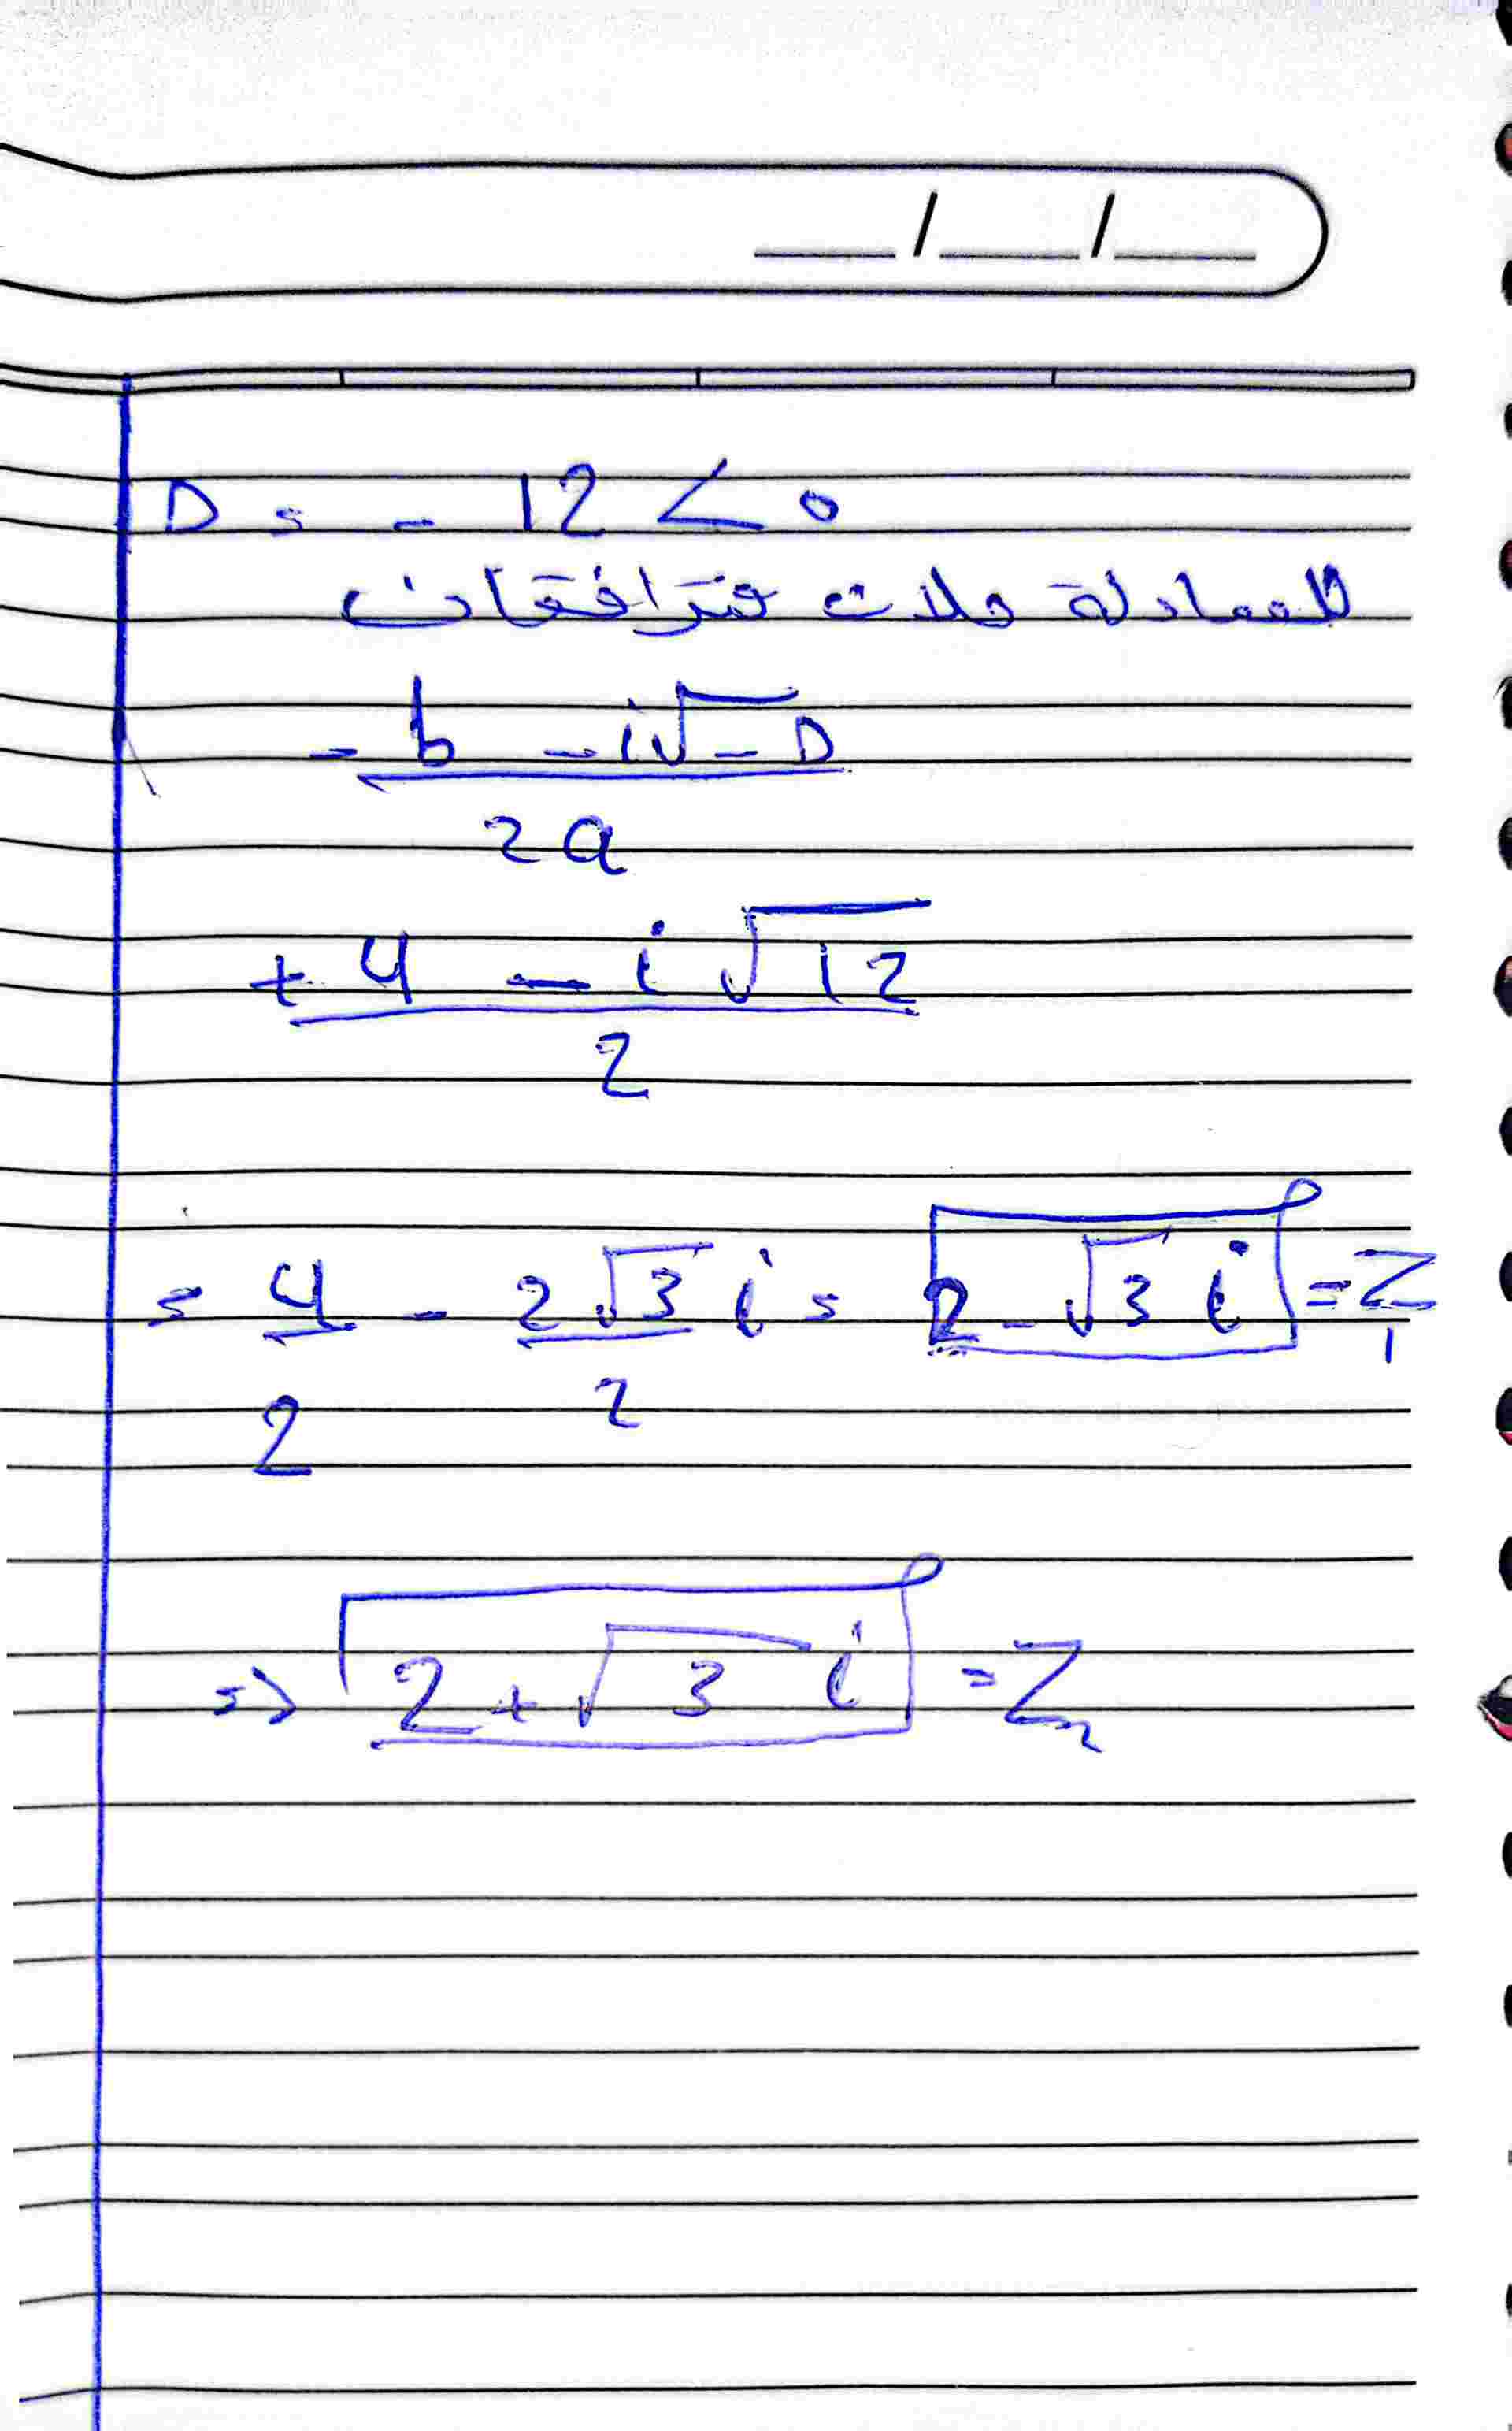 ___/___/___
D = - 12 < 0
للمعادلة حلان مترافقان
- b - i√-D
2a
+ 4 - i√12
2
= 4/2 - 2√3/2 i = 2 - √3 i = Z₁
=> 2 + √3 i = Z₂